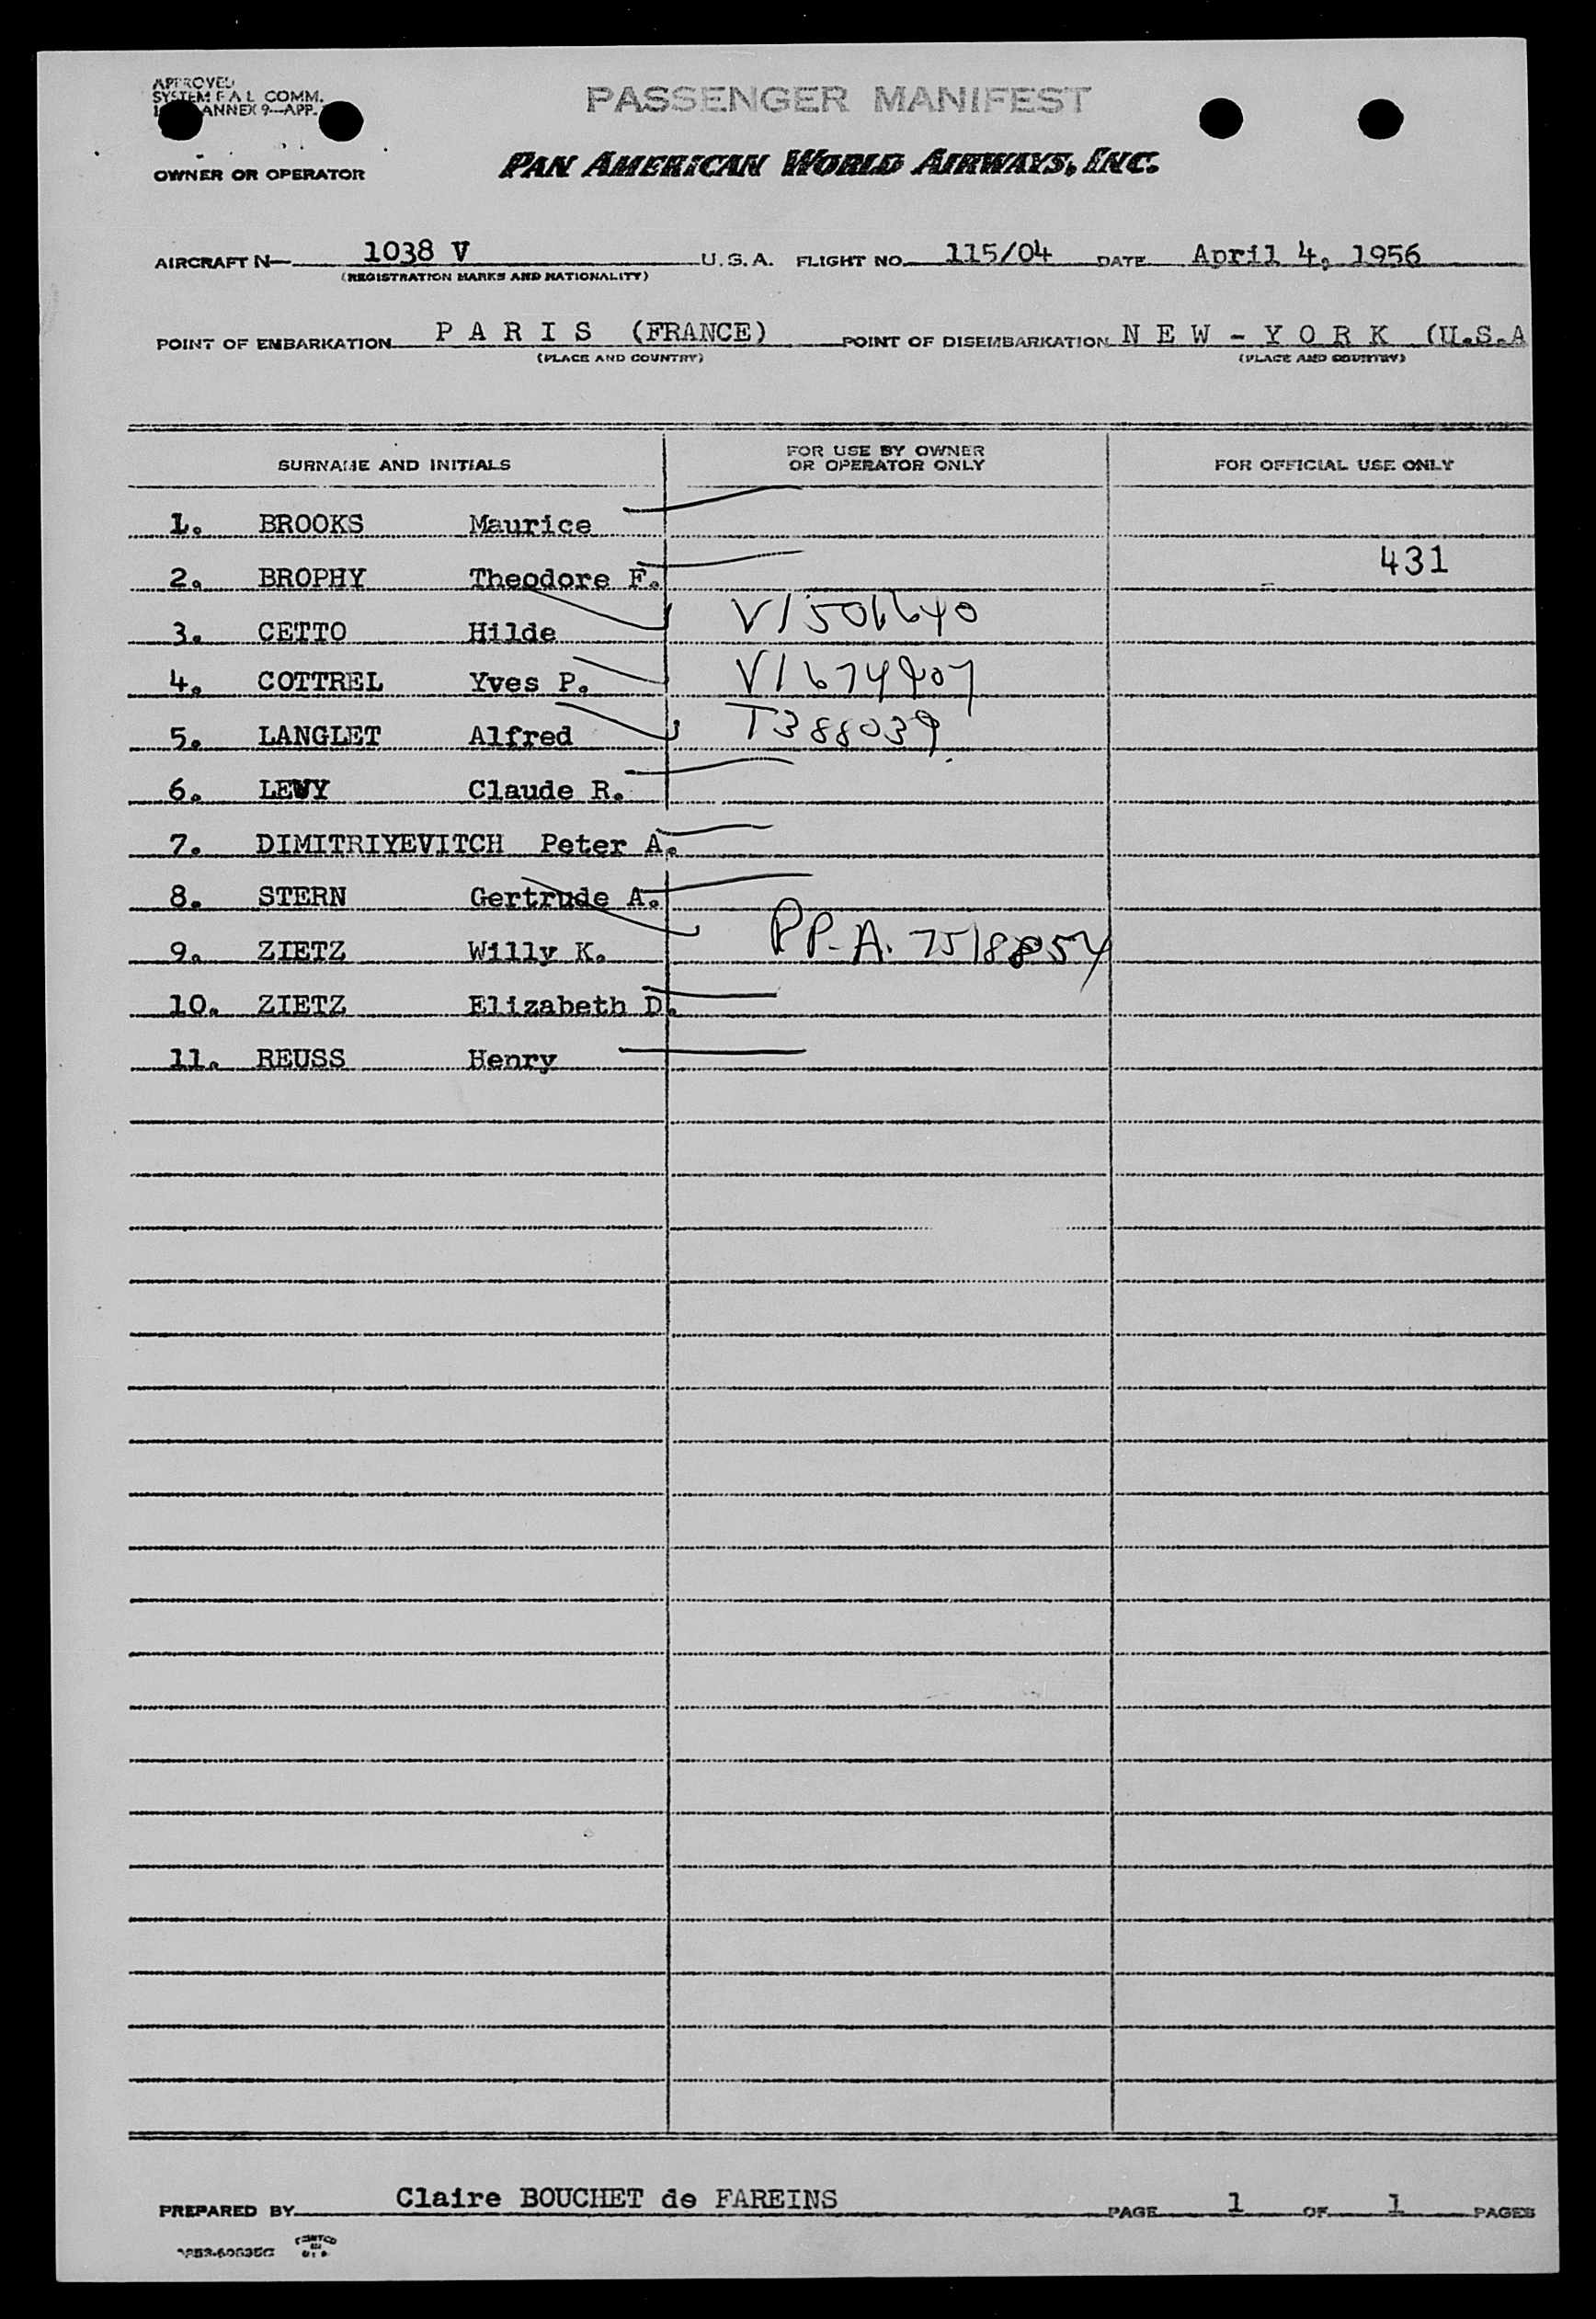 APPROVED
SYSTEM F A L COMM.
ANNEX 9—APP.
PASSENGER MANIFEST
OWNER OR OPERATOR
PAN AMERICAN WORLD AIRWAYS, INC.
AIRCRAFT N— 1038 V U.S.A. FLIGHT NO. 115/04 DATE April 4, 1956
(REGISTRATION MARKS AND NATIONALITY)
POINT OF EMBARKATION P A R I S (FRANCE) POINT OF DISEMBARKATION N E W - Y O R K (U.S.A
(PLACE AND COUNTRY) (PLACE AND COUNTRY)
SURNAME AND INITIALS FOR USE BY OWNER OR OPERATOR ONLY FOR OFFICIAL USE ONLY
1. BROOKS Maurice
2. BROPHY Theodore F. 431
3. CETTO Hilde V1506640
4. COTTREL Yves P.
5. LANGLET Alfred T388039
6. LEVY Claude R.
7. DIMITRIYEVITCH Peter A.
8. STERN Gertrude A.
9. ZIETZ Willy K. PP-A. 7518854
10. ZIETZ Elizabeth D.
11. REUSS Henry
PREPARED BY Claire BOUCHET de FAREINS PAGE 1 OF 1 PAGES